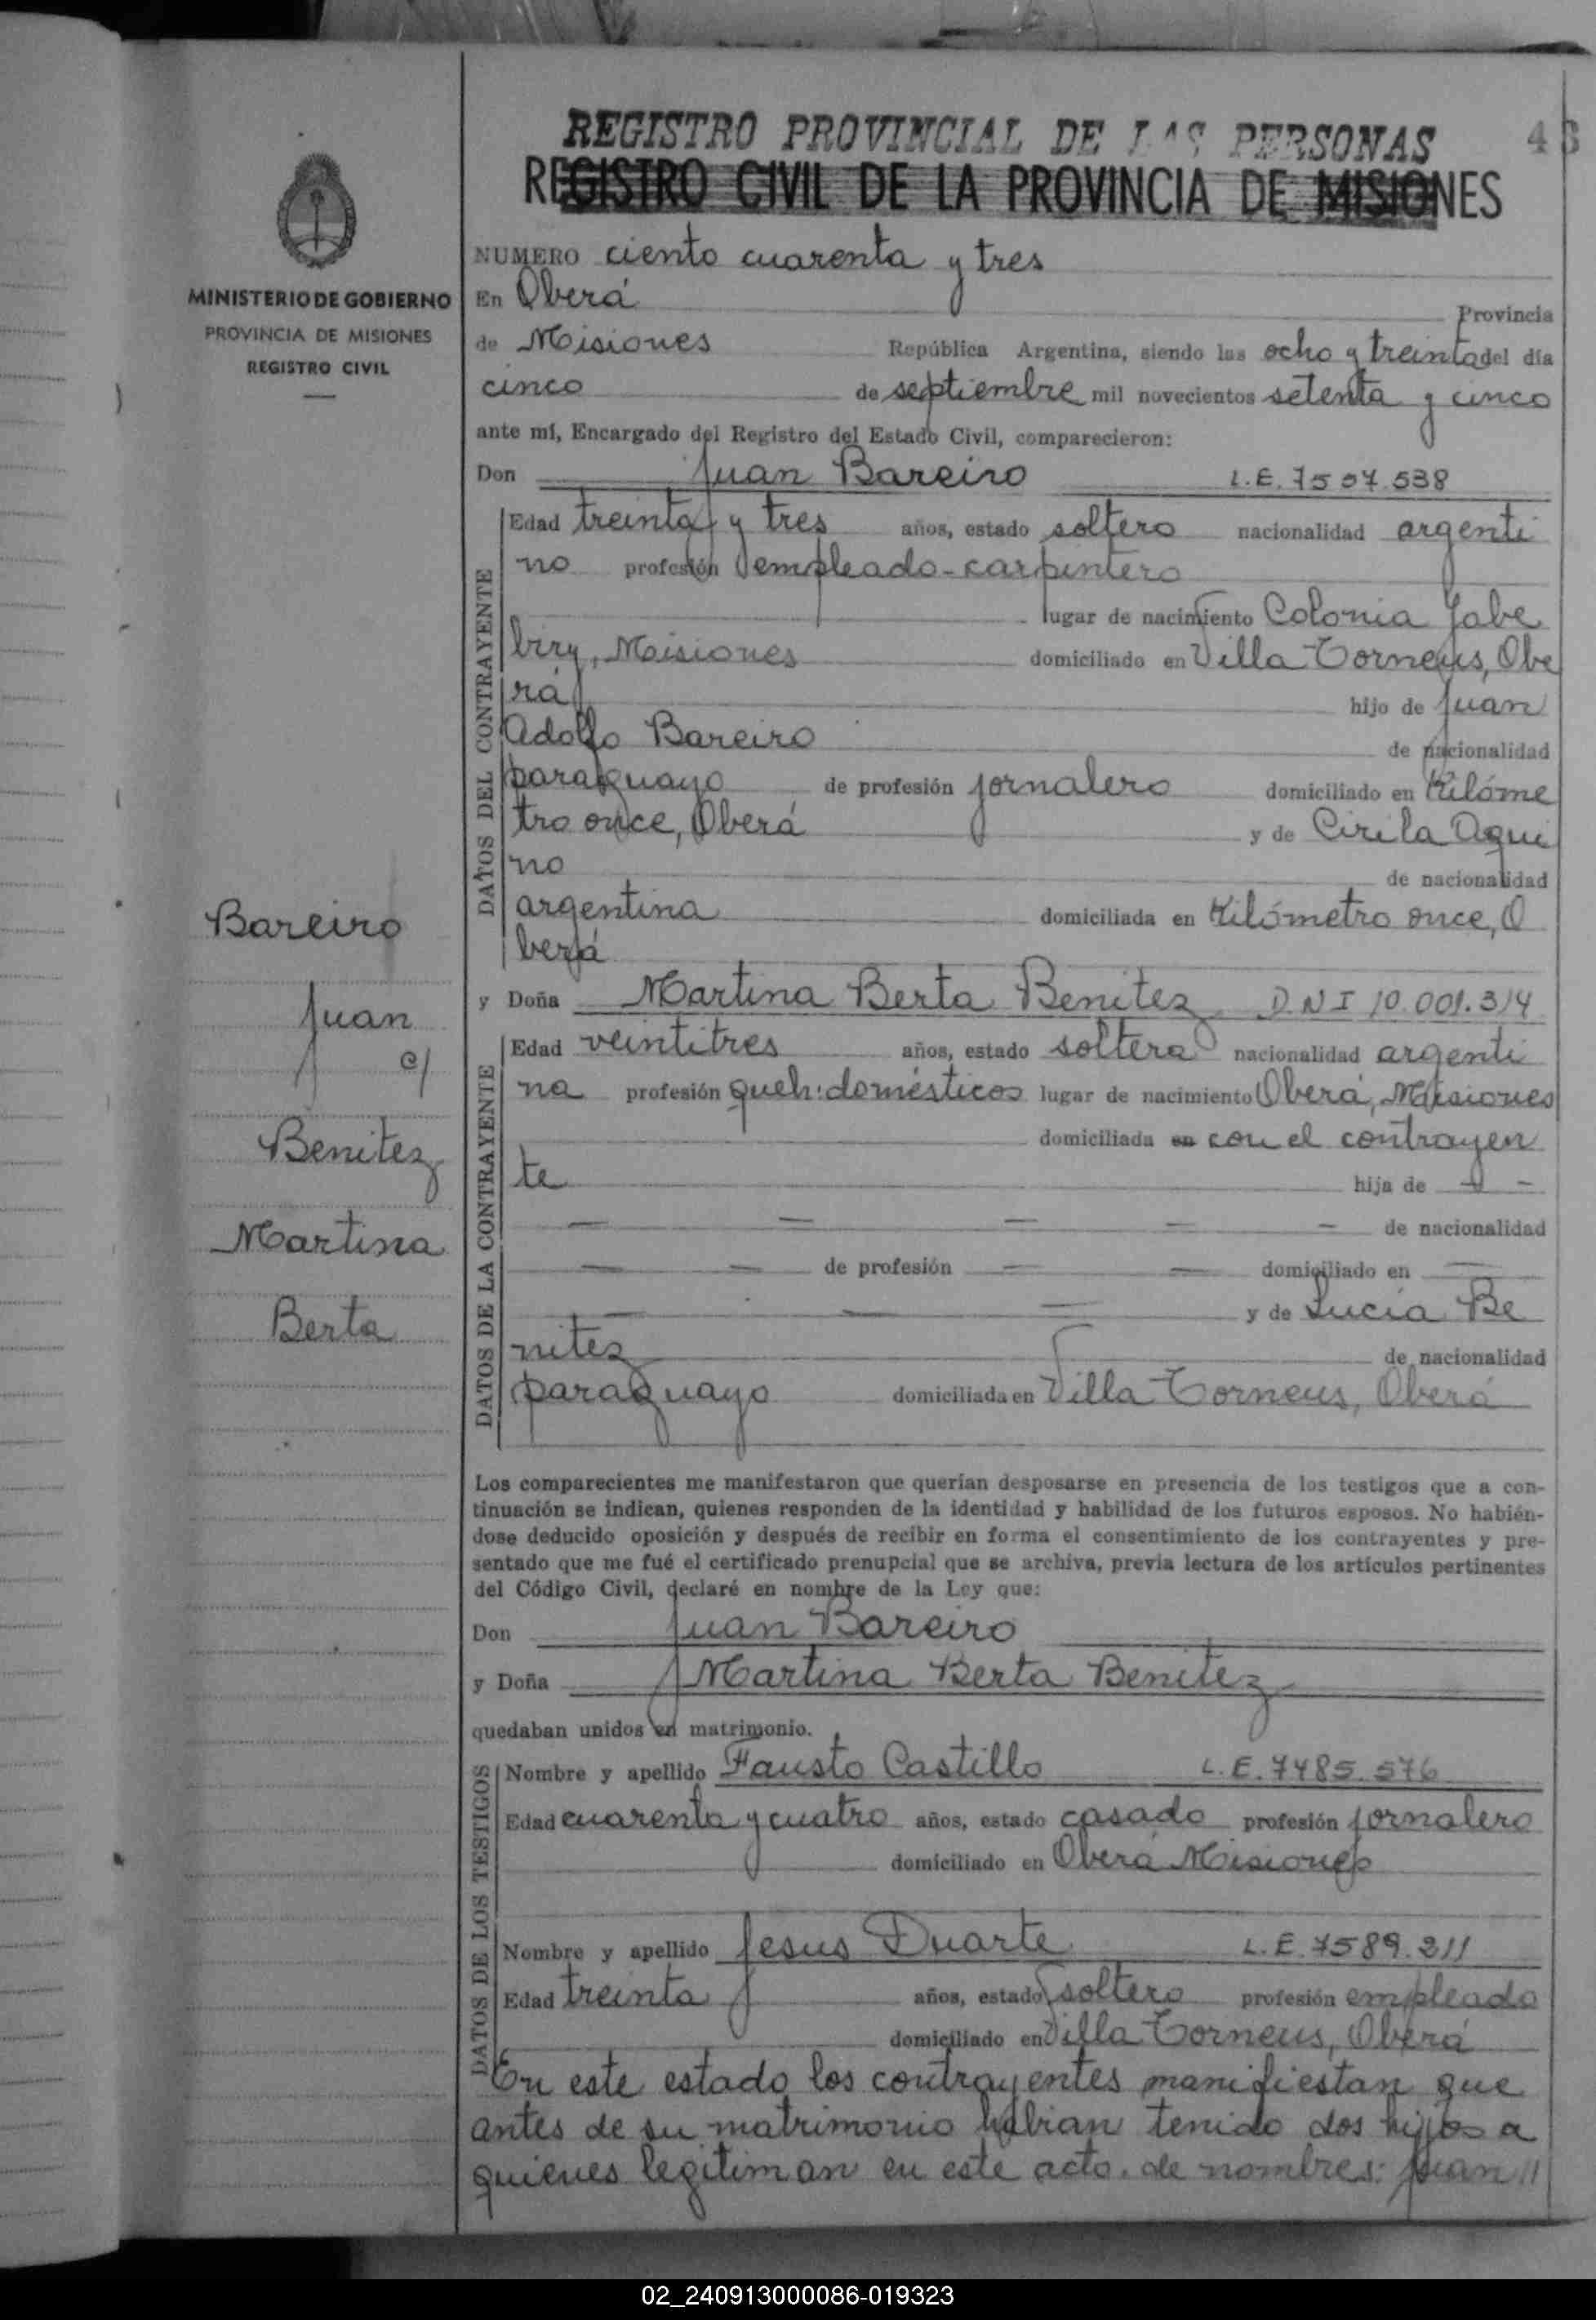 REGISTRO PROVINCIAL DE LAS PERSONAS
REGISTRO CIVIL DE LA PROVINCIA DE MISIONES
MINISTERIO DE GOBIERNO
PROVINCIA DE MISIONES
REGISTRO CIVIL
NUMERO ciento cuarenta y tres
En Oberá Provincia
de Misiones República Argentina, siendo las ocho y treinta del día
cinco de septiembre mil novecientos setenta y cinco
ante mí, Encargado del Registro del Estado Civil, comparecieron:
Don Juan Bareiro L.E. 7507.538
DATOS DEL CONTRAYENTE
Edad treinta y tres años, estado soltero nacionalidad argenti
no profesión empleado-carpintero
lugar de nacimiento Colonia Yabe
biry, Misiones domiciliado en Villa Torneus, Obe
rá hijo de Juan
Adolfo Bareiro de nacionalidad
paraguayo de profesión jornalero domiciliado en Kilóme
tro once, Oberá y de Cirila Aqui
no de nacionalidad
argentina domiciliada en Kilómetro once, O
berá
y Doña Martina Berta Benitez D.N.I 10.001.314
DATOS DE LA CONTRAYENTE
Edad veintitres años, estado soltera nacionalidad argenti
na profesión queh: domésticos lugar de nacimiento Oberá, Misiones
domiciliada en con el contrayen
te hija de - -
— — — — - de nacionalidad
— — de profesión — — domiciliado en —
— — — y de Lucia Be
nitez de nacionalidad
paraguayo domiciliada en Villa Torneus, Oberá
Los comparecientes me manifestaron que querían desposarse en presencia de los testigos que a con-
tinuación se indican, quienes responden de la identidad y habilidad de los futuros esposos. No habién-
dose deducido oposición y después de recibir en forma el consentimiento de los contrayentes y pre-
sentado que me fué el certificado prenupcial que se archiva, previa lectura de los artículos pertinentes
del Código Civil, declaré en nombre de la Ley que:
Don Juan Bareiro
y Doña Martina Berta Benitez
quedaban unidos en matrimonio.
DATOS DE LOS TESTIGOS
Nombre y apellido Fausto Castillo L.E. 7485.576
Edad cuarenta y cuatro años, estado casado profesión jornalero
domiciliado en Oberá Misiones
Nombre y apellido Jesus Duarte L.E. 7589.211
Edad treinta años, estado soltero profesión empleado
domiciliado en Villa Torneus, Oberá
En este estado los contrayentes manifiestan que
antes de su matrimonio habian tenido dos hijos a
quienes legitiman en este acto. de nombres: Juan //
Bareiro
Juan
c/
Benitez
Martina
Berta
02_240913000086-019323